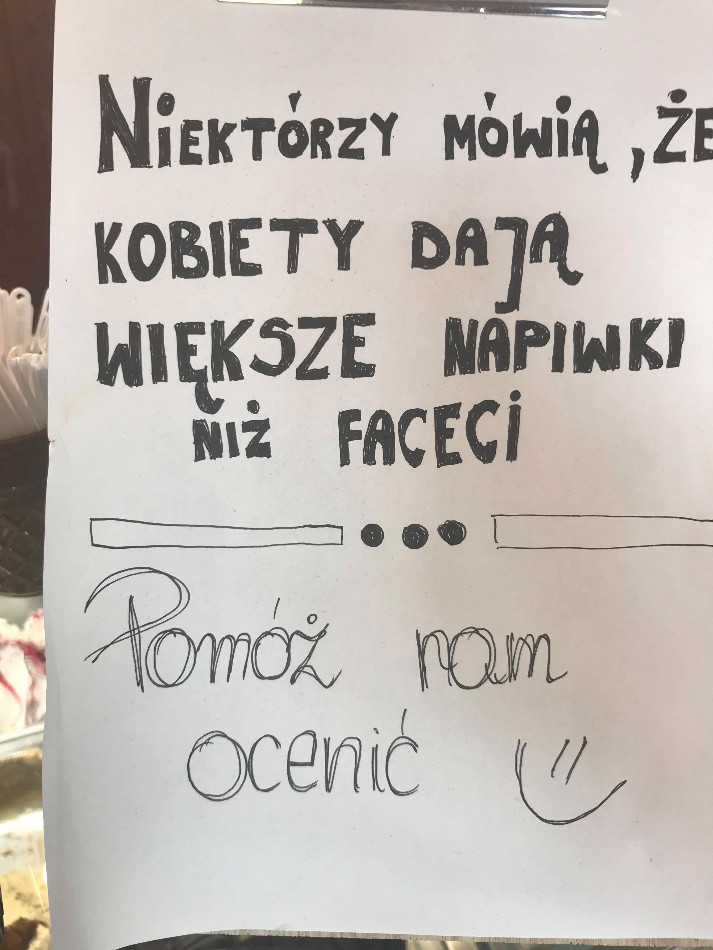 NiEKTÓRZY MÓWIĄ, ŻE
KOBIETY DAJĄ
WIĘKSZE NAPIWKI
NIŻ FACECI
Pomóż nam
ocenić